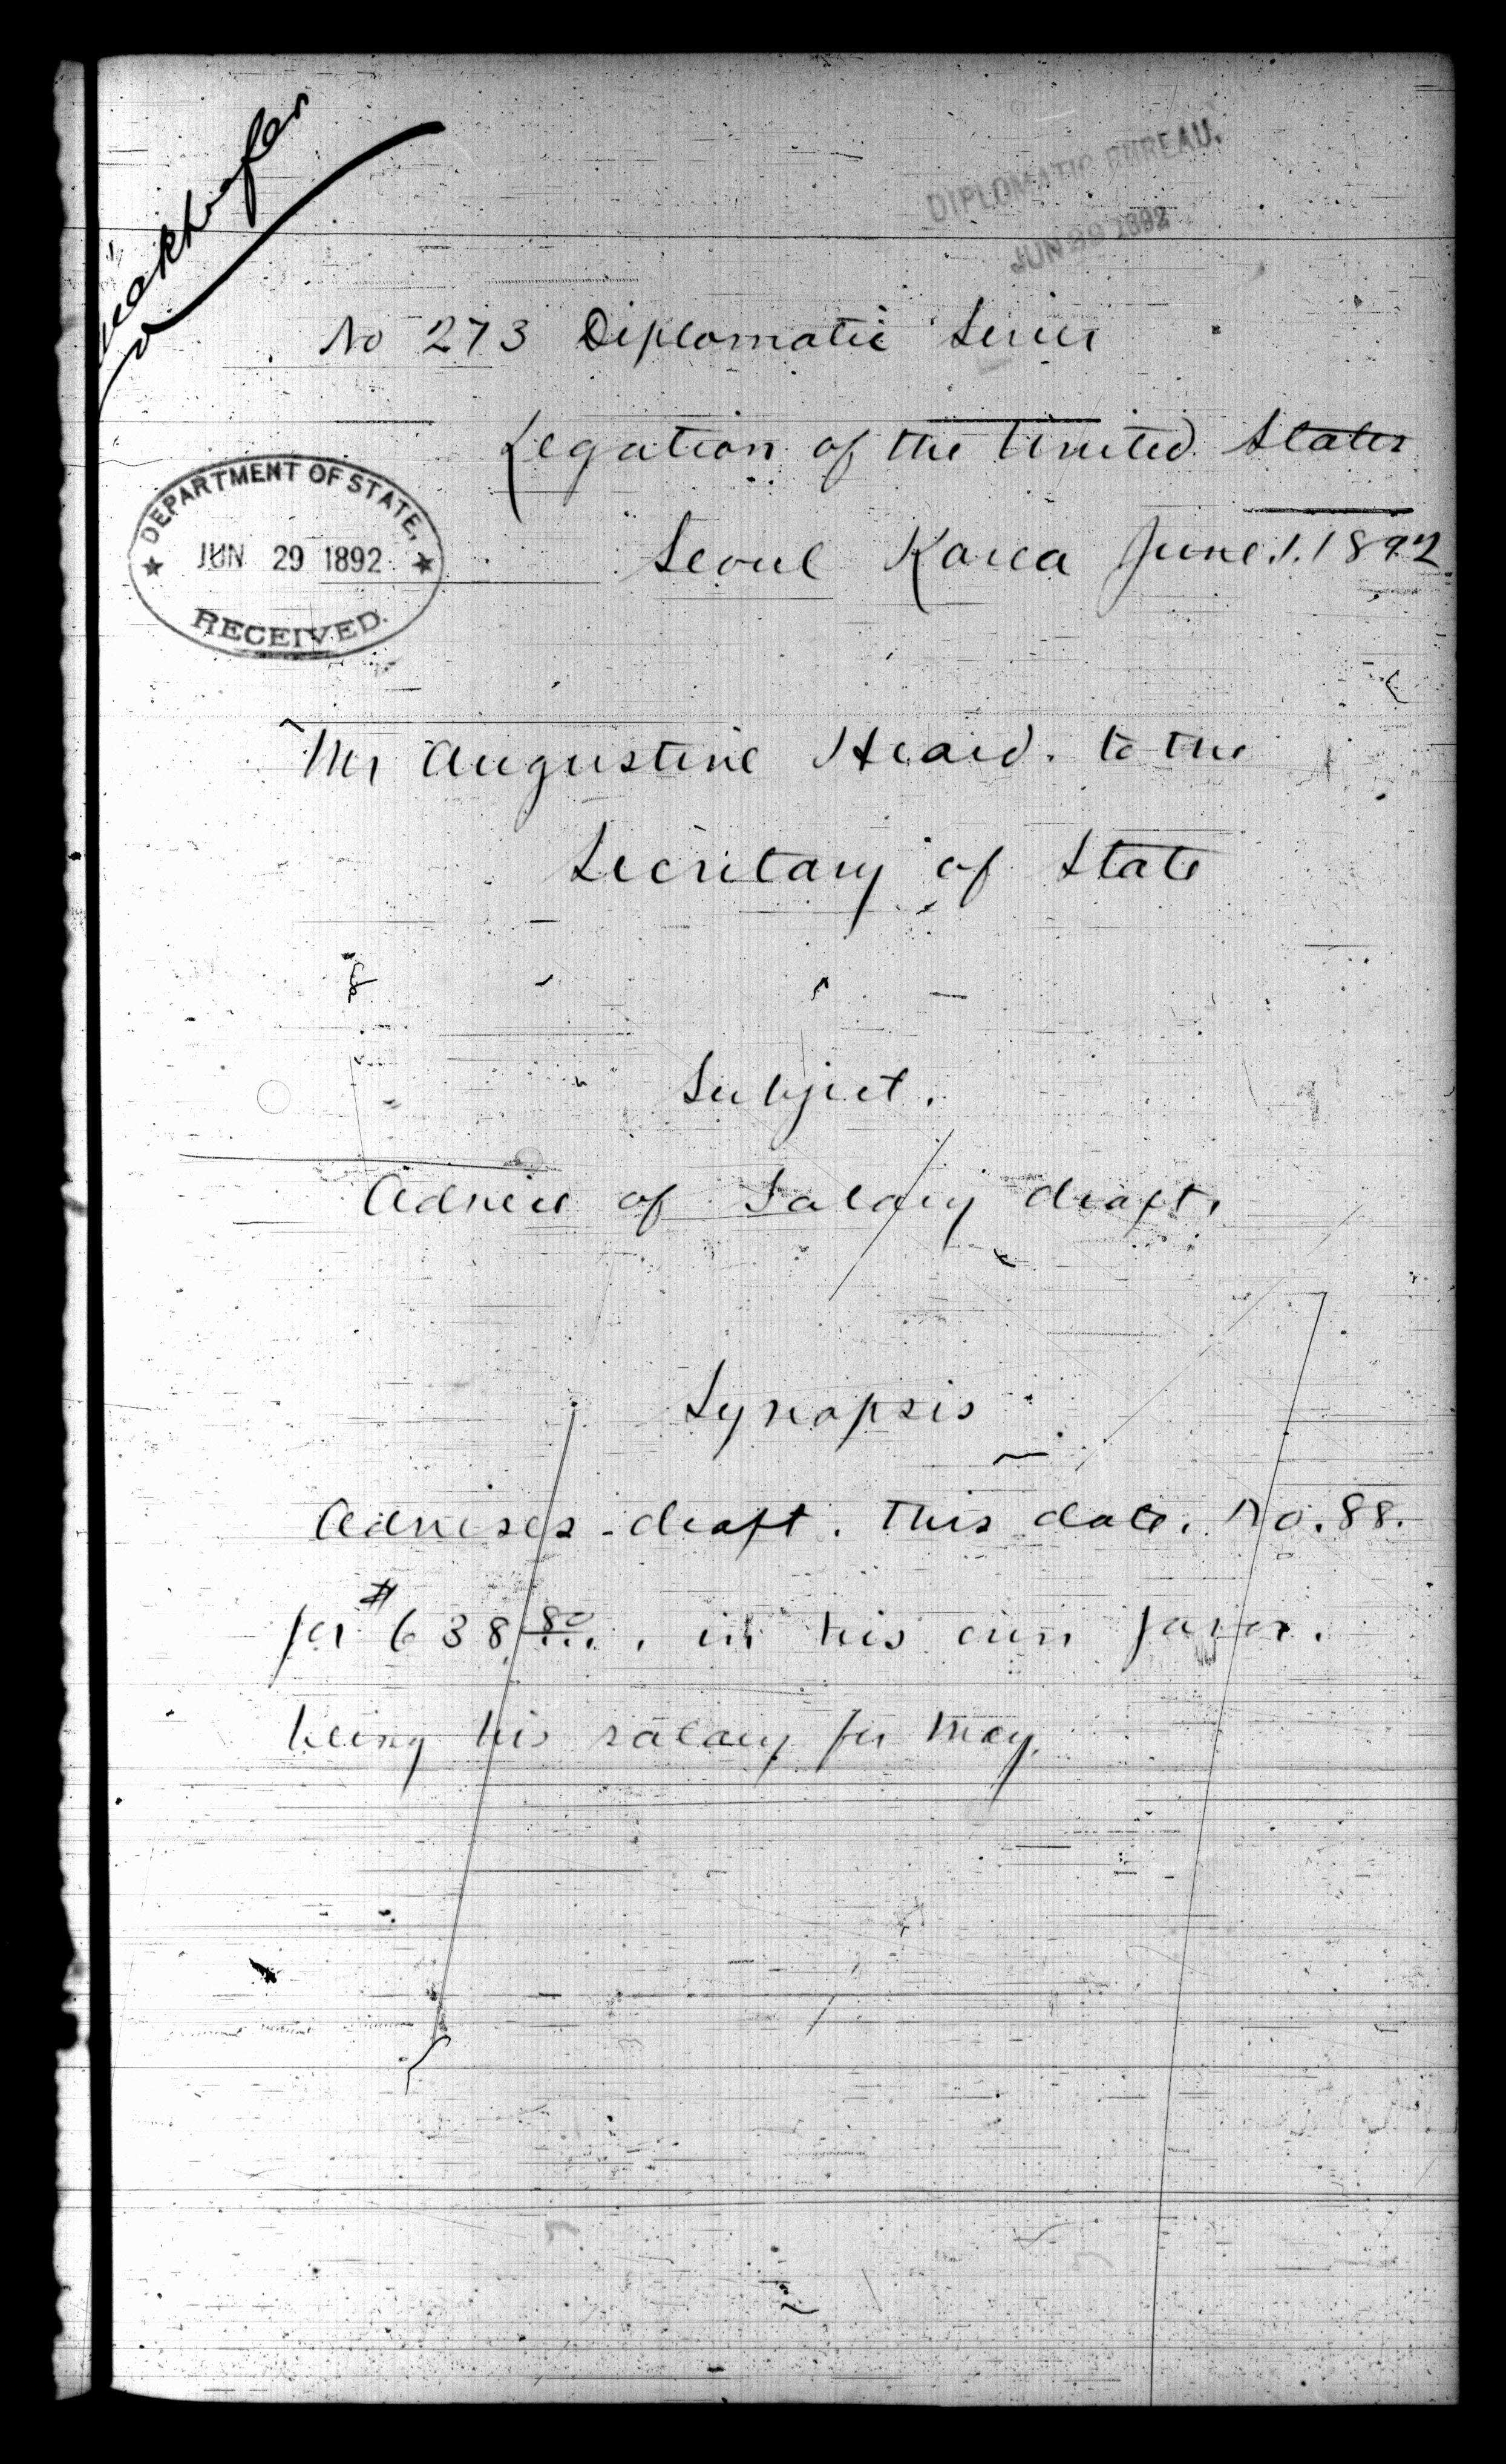 DIPLOMATIC BUREAU.
JUN 29 1892
No 273 Diplomatic Series
Legation of the United States
Seoul Korea June 1. 1892
DEPARTMENT OF STATE,
JUN 29 1892
RECEIVED.
Mr Augustine Heard. to the
Secretary of State
Subject.
Advice of Salary draft.
Synopsis
Advises draft. this date. No. 88.
for $638 80/... , in his own favor.
being his salary for May.